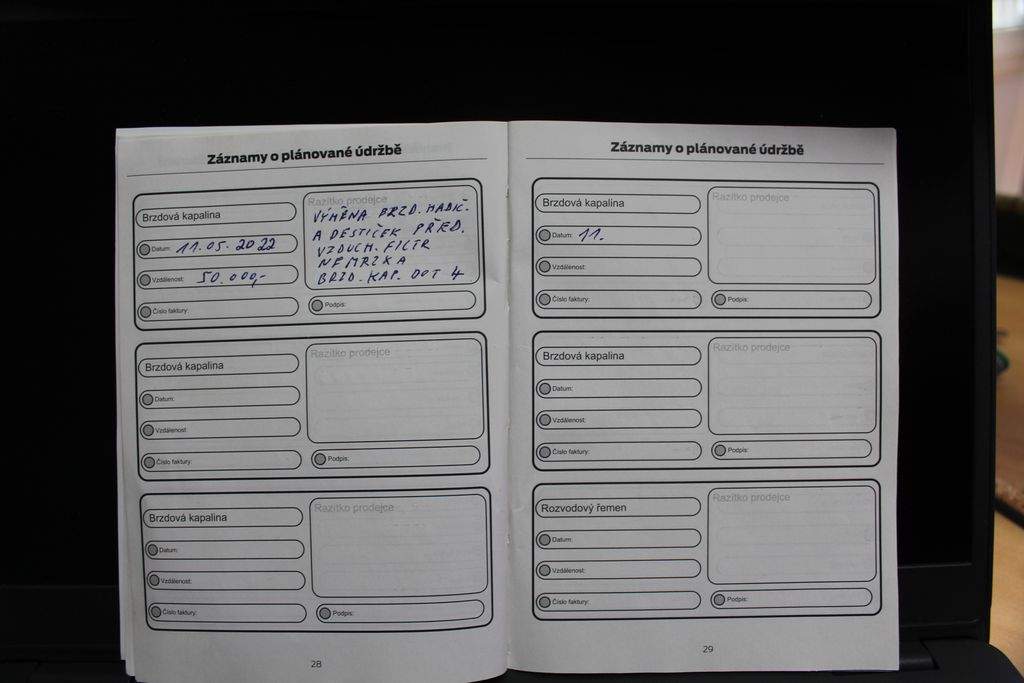 Záznamy o plánované údržbě
Brzdová kapalina
Datum: 11.05.2022
Vzdálenost: 50.000,-
Číslo faktury:
Razítko prodejce
VÝMĚNA BRZD. HADIC.
A DESTIČEK PŘED.
VZDUCH. FILTR
NEMRZKA
BRZD. KAP. DOT 4
Podpis:
Brzdová kapalina
Datum:
Vzdálenost:
Číslo faktury:
Razítko prodejce
Podpis:
Brzdová kapalina
Datum:
Vzdálenost:
Číslo faktury:
Razítko prodejce
Podpis:
28
Záznamy o plánované údržbě
Brzdová kapalina
Datum: 11.
Vzdálenost:
Číslo faktury:
Razítko prodejce
Podpis:
Brzdová kapalina
Datum:
Vzdálenost:
Číslo faktury:
Razítko prodejce
Podpis:
Rozvodový řemen
Datum:
Vzdálenost:
Číslo faktury:
Razítko prodejce
Podpis:
29